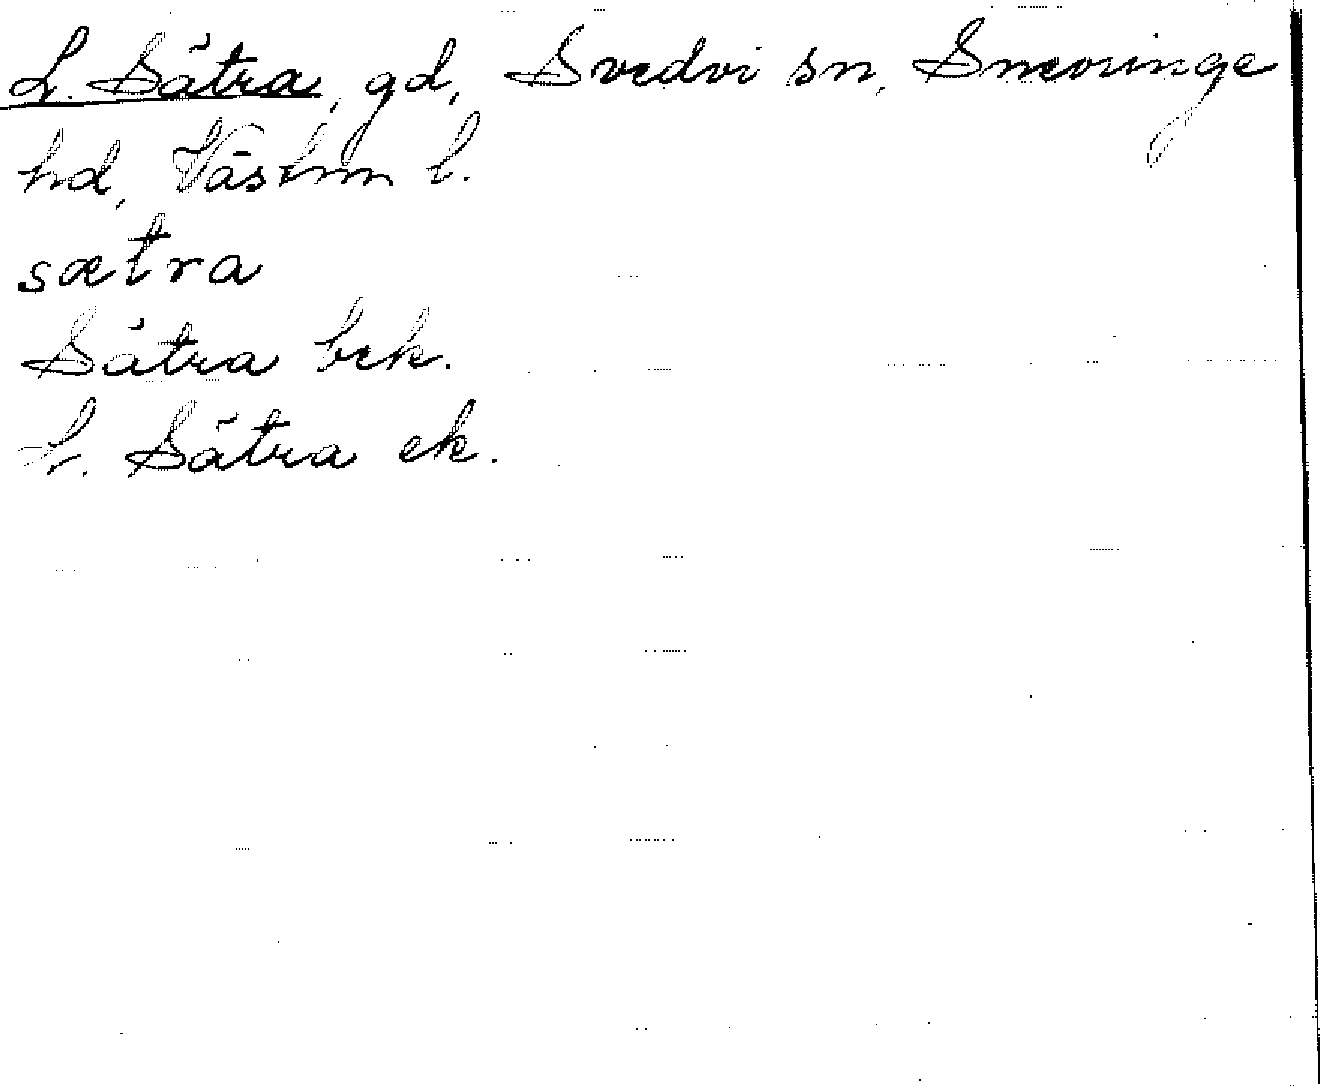 L. Sätra, gd, Svedvi sn, Snevringe
hd, Västm l.
sætra
Sätra bek.
L. Sätra ek.